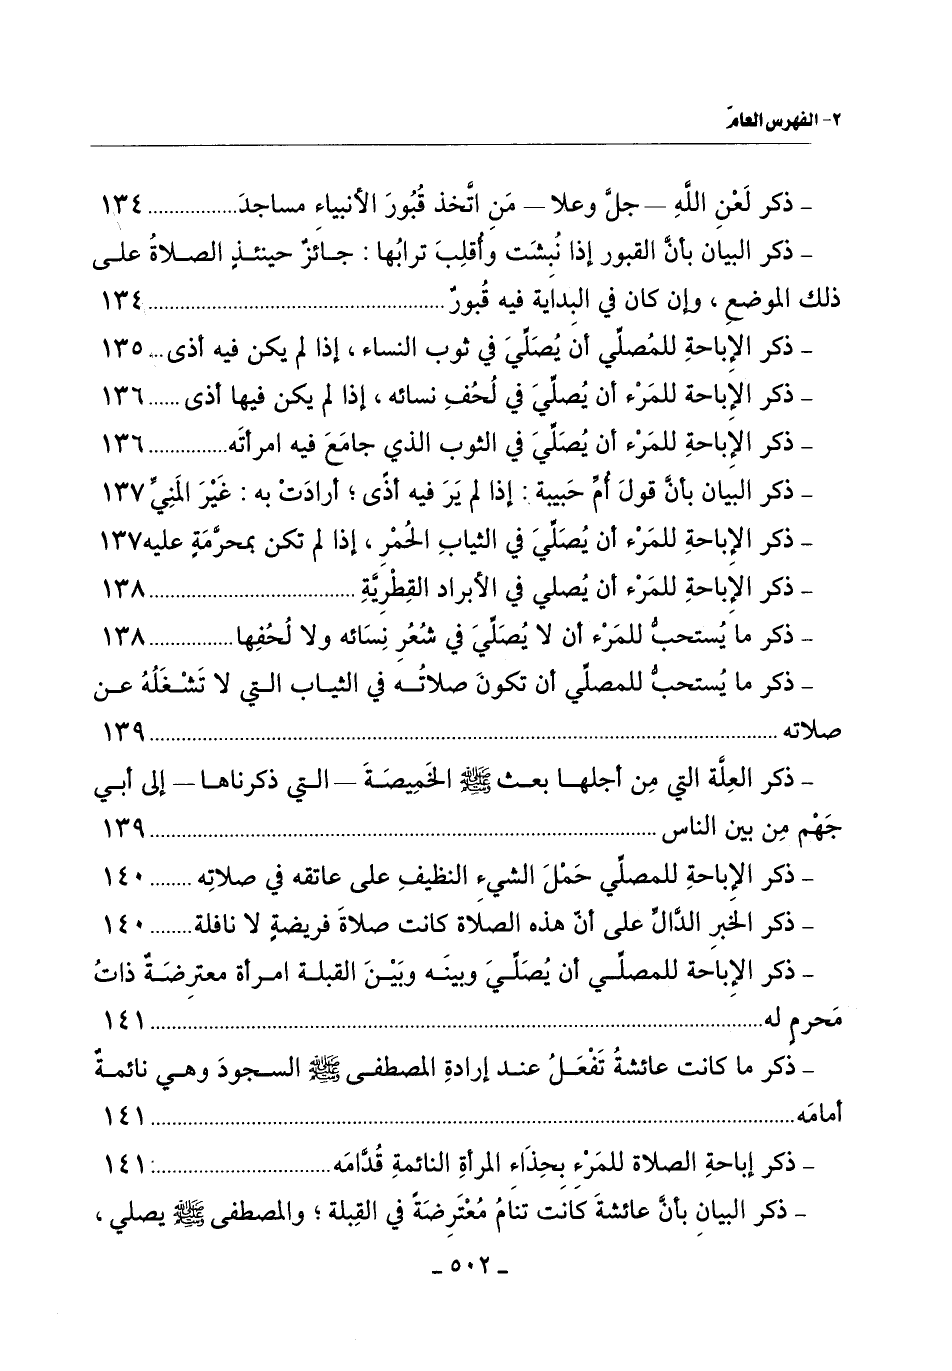 ٢- الفهرس العامّ
ـ ذكر لَعْنِ اللَّهِ — جلَّ وعلا — مَنِ اتَّخذ قُبُورَ الأنبياءِ مساجدَ................١٣٤
ـ ذكر البيان بأنَّ القبور إذا نُبشَت وأُقلِبَ ترابُها : جـائزٌ حينئـذٍ الصـلاةُ علـى
ذلك الموضع ، وإن كان في البداية فيه قُبورٌ................١٣٤
ـ ذكر الإباحةِ للمُصلِّي أن يُصَلِّيَ في ثوب النساء ، إذا لم يكن فيه أذى....١٣٥
ـ ذكر الإباحةِ للمَرْء أن يُصلِّيَ في لُحُفِ نسائه ، إذا لم يكن فيها أذى......١٣٦
ـ ذكر الإباحةِ للمَرْء أن يُصلِّيَ في الثوب الذي جامَعَ فيه امرأتَه...............١٣٦
ـ ذكر البيان بأنَّ قولَ أُمِّ حَبيبة : إذا لم يَرَ فيه أذًى ؛ أرادَتْ به : غَيْرَ المَنِيِّ ١٣٧
ـ ذكر الإباحةِ للمَرْء أن يُصَلِّيَ في الثيابِ الحُمْرِ ، إذا لم تكن بمحرَّمَةٍ عليه١٣٧
ـ ذكر الإباحةِ للمَرْء أن يُصلي في الأبراد القِطْرِيَّةِ................١٣٨
ـ ذكر ما يُستحبُّ للمَرْء أن لا يُصَلِّيَ في شُعُرِ نِسَائه ولا لُحُفِها................١٣٨
ـ ذكر ما يُستحبُّ للمصلِّي أن تكونَ صلاتُـه في الثيـاب التي لا تَشْـغَلُهُ عـن
صلاته................١٣٩
ـ ذكر العِلَّة التي مِن أجلهـا بعـث ﷺ الخَمِيصَـةَ — التـي ذكرناهـا — إلى أبـي
جَهْمٍ مِن بين الناس................١٣٩
ـ ذكر الإباحةِ للمصلِّي حَمْلَ الشيءِ النظيفِ على عاتقه في صلاتِه ........١٤٠
ـ ذكر الخبرِ الدَّالِّ على أنّ هذه الصلاة كانت صلاةَ فريضةٍ لا نافلة........١٤٠
ـ ذكر الإباحة للمصلِّـي أن يُصَلِّيَ وبينَـه وبَيْـنَ القبلـة امـرأة معترضَـةٌ ذاتُ
مَحرمٍ له................١٤١
ـ ذكر ما كانت عائشةُ تَفْعَـلُ عنـد إرادةِ المصطفـى ﷺ السـجودَ وهـي نائمـةٌ
أمامَه................١٤١
ـ ذكر إباحةِ الصلاة للمَرْءِ بحِذَاء المرأةِ النائمةِ قُدَّامَه................١٤١
ـ ذكر البيانِ بأنَّ عائشةَ كانت تنامُ مُعْتَرِضَةً في القِبلة ؛ والمصطفى ﷺ يصلي ،
ـ ٥٠٢ ـ